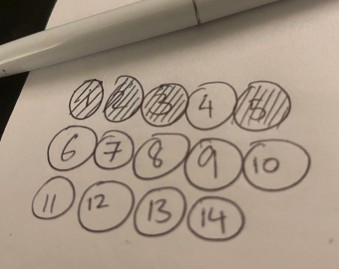 1 2 3 4 5
6 7 8 9 10
11 12 13 14